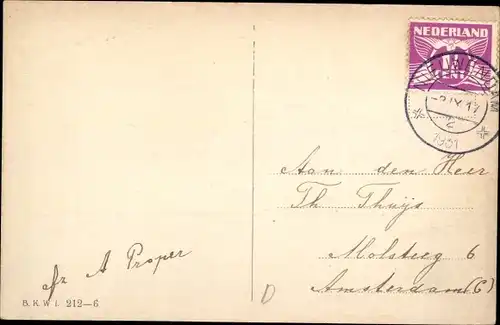 NEDERLAND
1½
CENT
1931
Aan den Heer
Th Thuijs
Molsteeg 6
Amsterdam (C)
Fr A Proper
B. K. W. I. 212—6
D